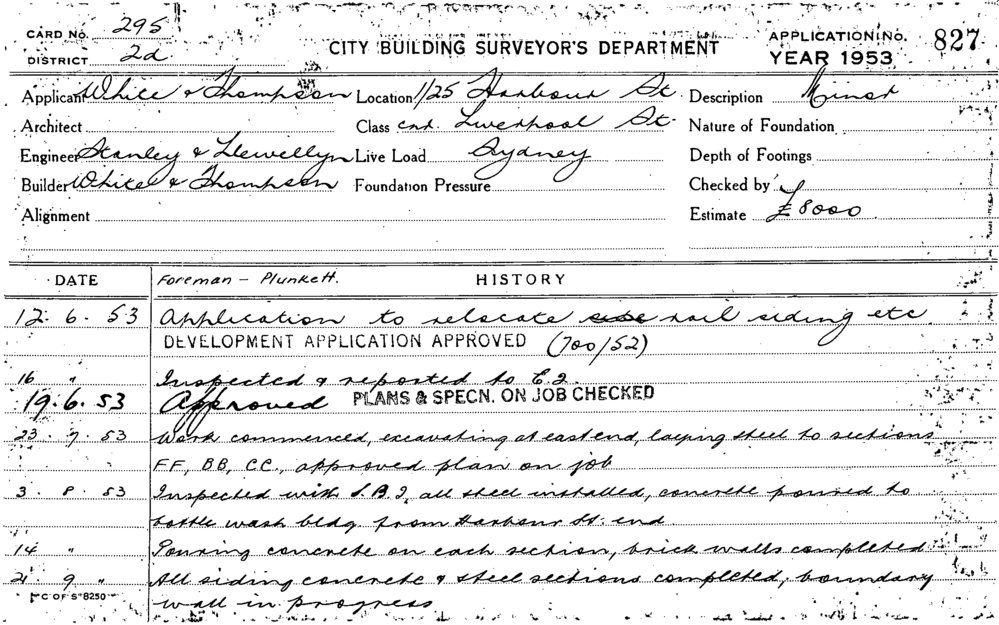 CARD No. 295
DISTRICT 2d
CITY BUILDING SURVEYOR'S DEPARTMENT
APPLICATION No. 827
YEAR 1953
Applicant White & Thompson Location 1/25 Harbour St. Description Minor
Architect Class cnr. Liverpool St. Nature of Foundation
Engineer Stanley & Llewellyn Live Load Sydney Depth of Footings
Builder White & Thompson Foundation Pressure Checked by
Alignment Estimate £8000
DATE Foreman - Plunkett. HISTORY
12. 6. 53 Application to relocate side rail siding etc
DEVELOPMENT APPLICATION APPROVED (700/52)
16 " Inspected & reported to E.I.
19. 6. 53 Approved PLANS & SPECN. ON JOB CHECKED
23. 7. 53 Work commenced, excavating at east end, laying steel to sections
FF, BB, CC., approved plan on job
3. 8. 53 Inspected with S.B.I, all steel installed, concrete poured to
bottle wash bldg. from Harbour St. end
14 " Pouring concrete on each section, brick walls completed
21. 9 " All siding concrete & steel sections completed, boundary
wall in progress
C OF S 8250